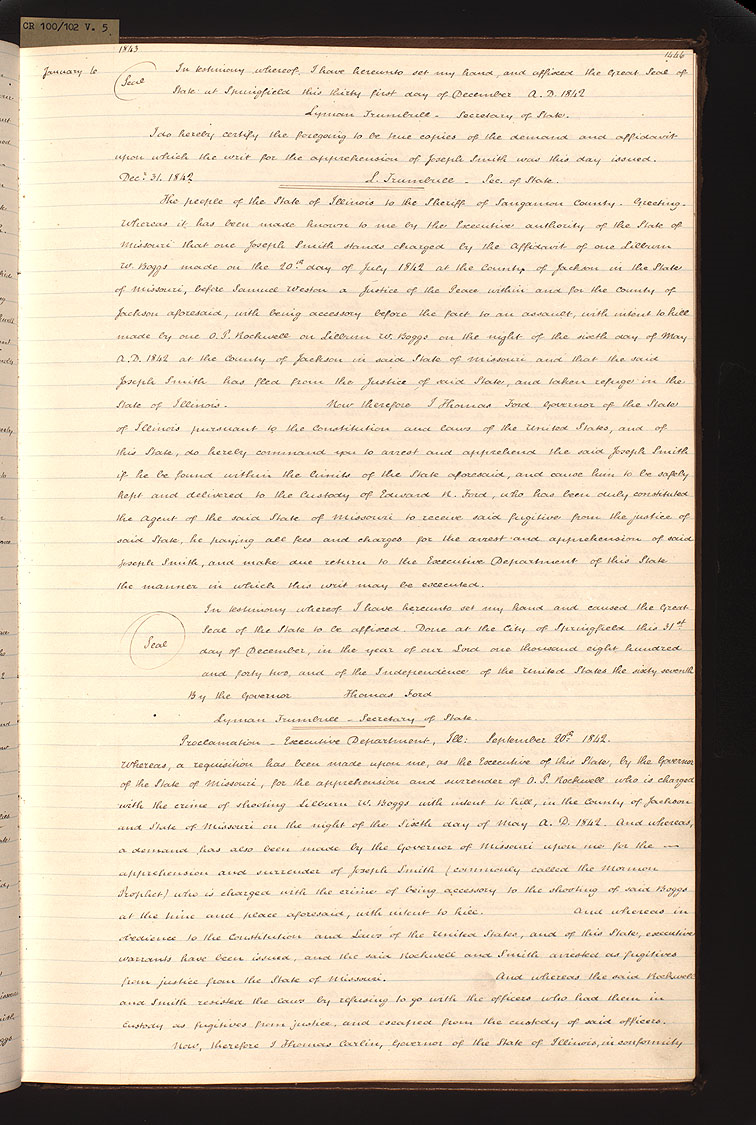 CR 100/102 V. 5
1843
1446
January 6
Seal
In testimony whereof, I have hereunto set my hand, and affixed the Great Seal of
State at Springfield this thirty first day of December A.D. 1842
Lyman Trumbull - Secretary of State.
I do hereby certify the foregoing to be true copies of the demand and affidavit
upon which the writ for the apprehension of Joseph Smith was this day issued.
Decr. 31. 1842 L. Trumbull - Sec. of State.
The people of the State of Illinois to the Sheriff of Sangamon County - Greeting.
Whereas it has been made known to me by the Executive authority of the State of
Missouri that one Joseph Smith stands charged by the Affidavit of one Lilburn
W. Boggs made on the 20th day of July 1842 at the County of Jackson in the State
of Missouri, before Samuel Weston a Justice of the Peace within and for the County of
Jackson aforesaid, with being accessory before the fact to an assault, with intent to kill
made by one O. P. Rockwell on Lilburn W. Boggs on the night of the sixth day of May
A.D. 1842 at the County of Jackson in said State of Missouri and that the said
Joseph Smith has fled from the Justice of said State, and taken refuge in the
State of Illinois. Now therefore I Thomas Ford Governor of the State
of Illinois pursuant to the Constitution and Laws of the United States, and of
this State, do hereby command you to arrest and apprehend the said Joseph Smith
if he be found within the limits of the State aforesaid, and cause him to be safely
kept and delivered to the Custody of Edward R. Ford, who has been duly constituted
the Agent of the said State of Missouri to receive said fugitive from the justice of
said State, he paying all fees and charges for the arrest and apprehension of said
Joseph Smith, and make due return to the Executive Department of this State
the manner in which this writ may be executed.
Seal
In testimony whereof I have hereunto set my hand and caused the Great
Seal of the State to be affixed. Done at the City of Springfield this 31st
day of December, in the year of our Lord one thousand eight hundred
and forty two, and of the Independence of the United States the sixty seventh
By the Governor Thomas Ford
Lyman Trumbull - Secretary of State.
Proclamation - Executive Department, Ill: September 20th 1842.
Whereas, a requisition has been made upon me, as the Executive of this State, by the Governor
of the State of Missouri, for the apprehension and surrender of O. P. Rockwell who is charged
with the crime of shooting Lilburn W. Boggs with intent to kill, in the County of Jackson
and State of Missouri on the night of the Sixth day of May A. D. 1842. And whereas,
a demand has also been made by the Governor of Missouri upon me for the —
apprehension and surrender of Joseph Smith (commonly called the Mormon
Prophet) who is charged with the crime of being accessory to the shooting of said Boggs
at the time and place aforesaid, with intent to kill. And whereas in
obedience to the Constitution and Laws of the United States, and of this State, executive
warrants have been issued, and the said Rockwell and Smith arrested as fugitives
from justice from the State of Missouri. And whereas the said Rockwell
and Smith resisted the laws by refusing to go with the officers who had them in
custody as fugitives from justice, and escaped from the custody of said officers.
Now, therefore I Thomas Carlin, Governor of the State of Illinois, in conformity